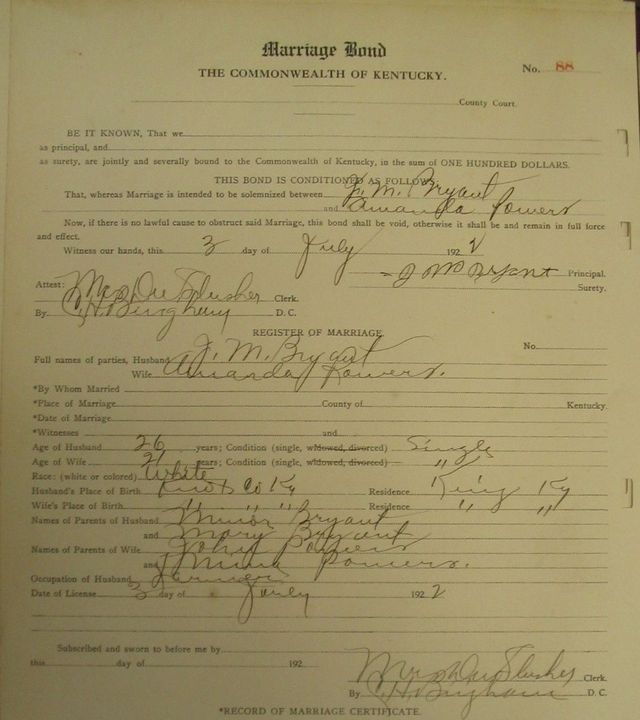 Marriage Bond
THE COMMONWEALTH OF KENTUCKY.
No. 88
County Court.
BE IT KNOWN, That we
as principal, and
as surety, are jointly and severally bound to the Commonwealth of Kentucky, in the sum of ONE HUNDRED DOLLARS.
THIS BOND IS CONDITIONED AS FOLLOWS:
That, whereas Marriage is intended to be solemnized between J. M. Bryant
and Amanda Powers
Now, if there is no lawful cause to obstruct said Marriage, this bond shall be void, otherwise it shall be and remain in full force
and effect.
Witness our hands, this 3 day of July 1922
J M Bryant Principal.
Surety.
Attest: Slusher Clerk.
By Bingham D. C.
REGISTER OF MARRIAGE.
No.
Full names of parties, Husband J. M. Bryant
Wife Amanda Powers.
*By Whom Married
*Place of Marriage County of Kentucky.
*Date of Marriage
*Witnesses and
Age of Husband 26 years; Condition (single, widowed, divorced) Single
Age of Wife 21 years; Condition (single, widowed, divorced) " "
Race: (white or colored) White
Husband's Place of Birth Knox Co Ky Residence King Ky
Wife's Place of Birth " " " Residence " "
Names of Parents of Husband Bryant
and Mary Bryant
Names of Parents of Wife John Powers
and Powers.
Occupation of Husband Farmer
Date of License 3 day of July 1922
Subscribed and sworn to before me by
this day of 192
Slusher Clerk.
By Bingham D. C.
*RECORD OF MARRIAGE CERTIFICATE.